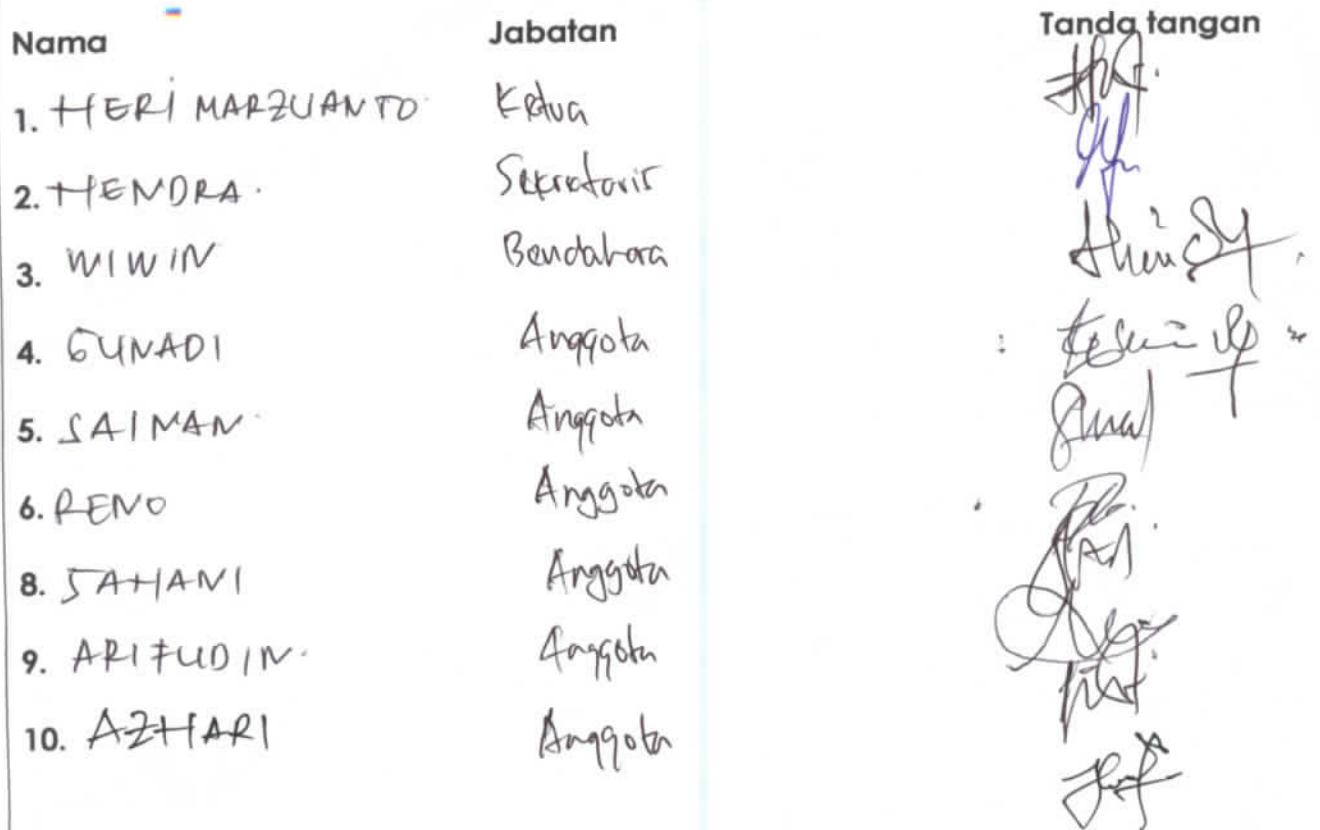 Nama Jabatan Tanda tangan
1. HERI MARZUANTO Ketua
2. HENDRA. Sekretaris
3. WIWIN Bendahara
4. GUNADI Anggota
5. SAIMAN Anggota
6. RENO Anggota
8. SAHANI Anggota
9. ARIFUDIN. Anggota
10. AZHARI Anggota